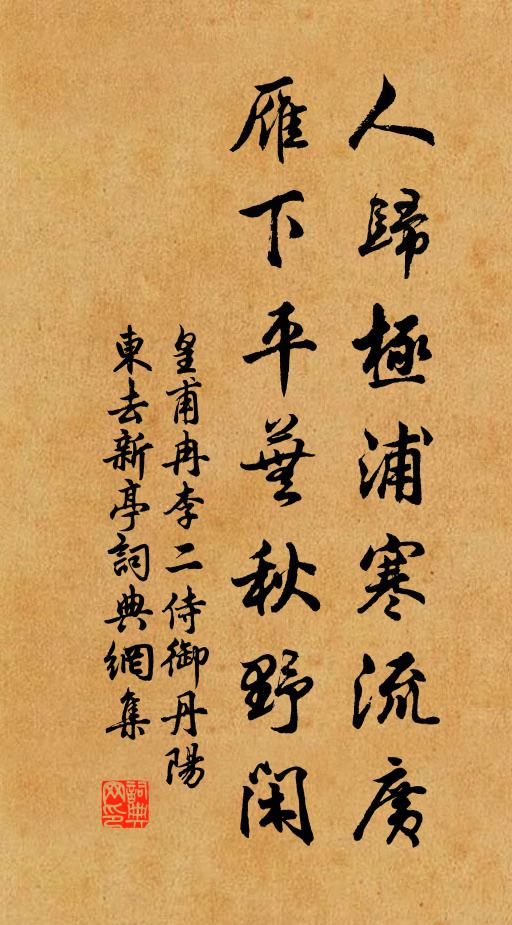 人歸極浦寒流廣
雁下平蕪秋野閑
皇甫冉李二侍御丹陽
東去新亭詞典網集
詞典
网印